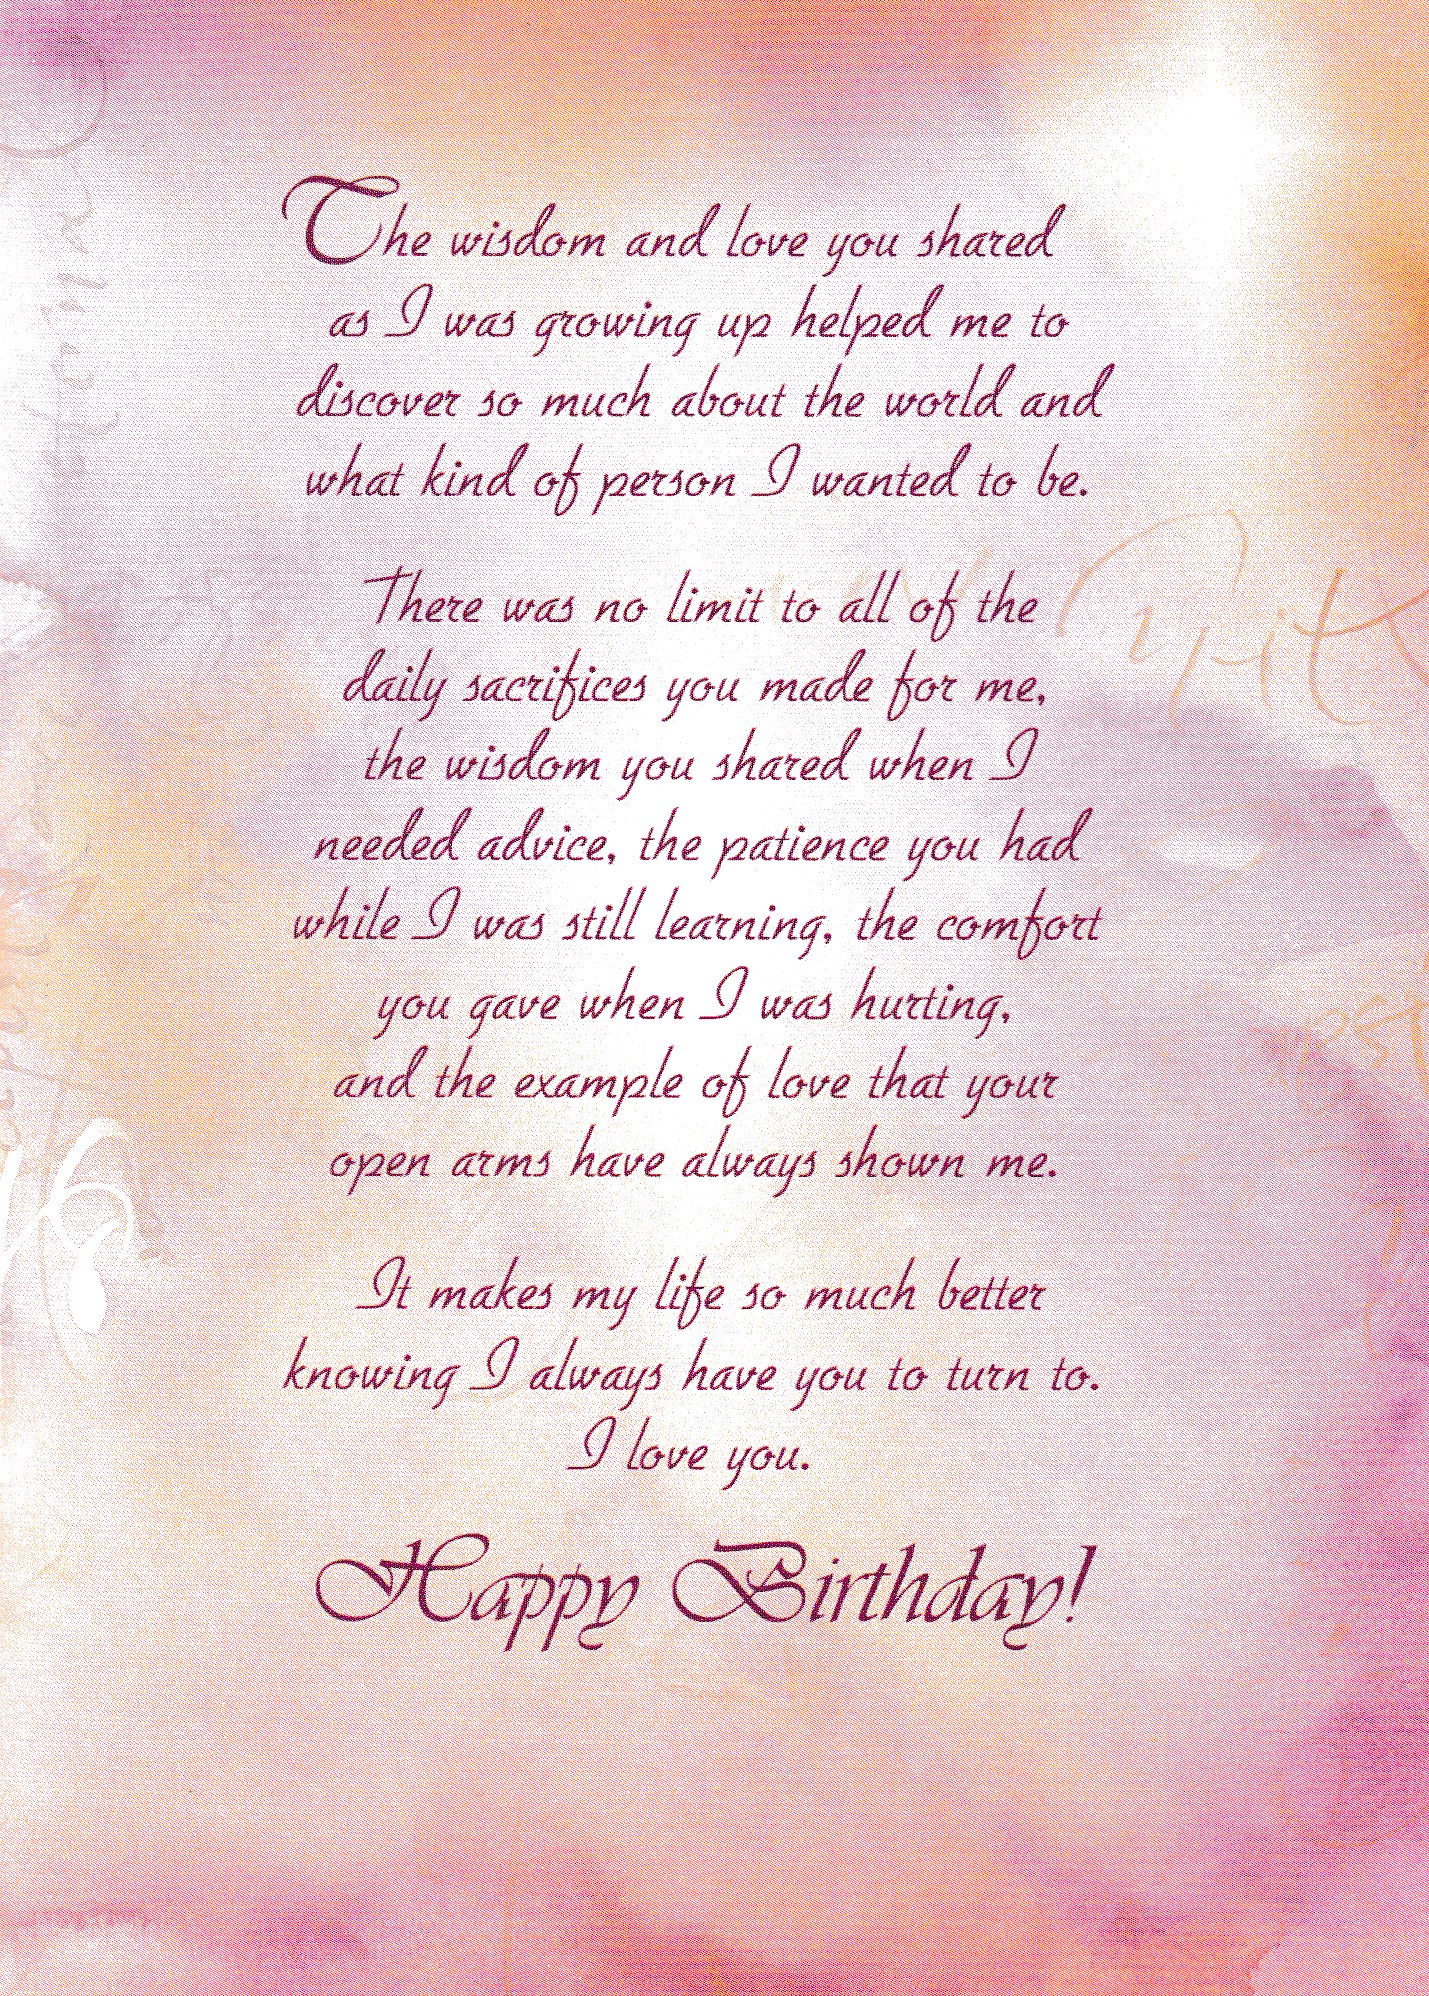 The wisdom and love you shared
as I was growing up helped me to
discover so much about the world and
what kind of person I wanted to be.
There was no limit to all of the
daily sacrifices you made for me,
the wisdom you shared when I
needed advice, the patience you had
while I was still learning, the comfort
you gave when I was hurting,
and the example of love that your
open arms have always shown me.
It makes my life so much better
knowing I always have you to turn to.
I love you.
Happy Birthday!